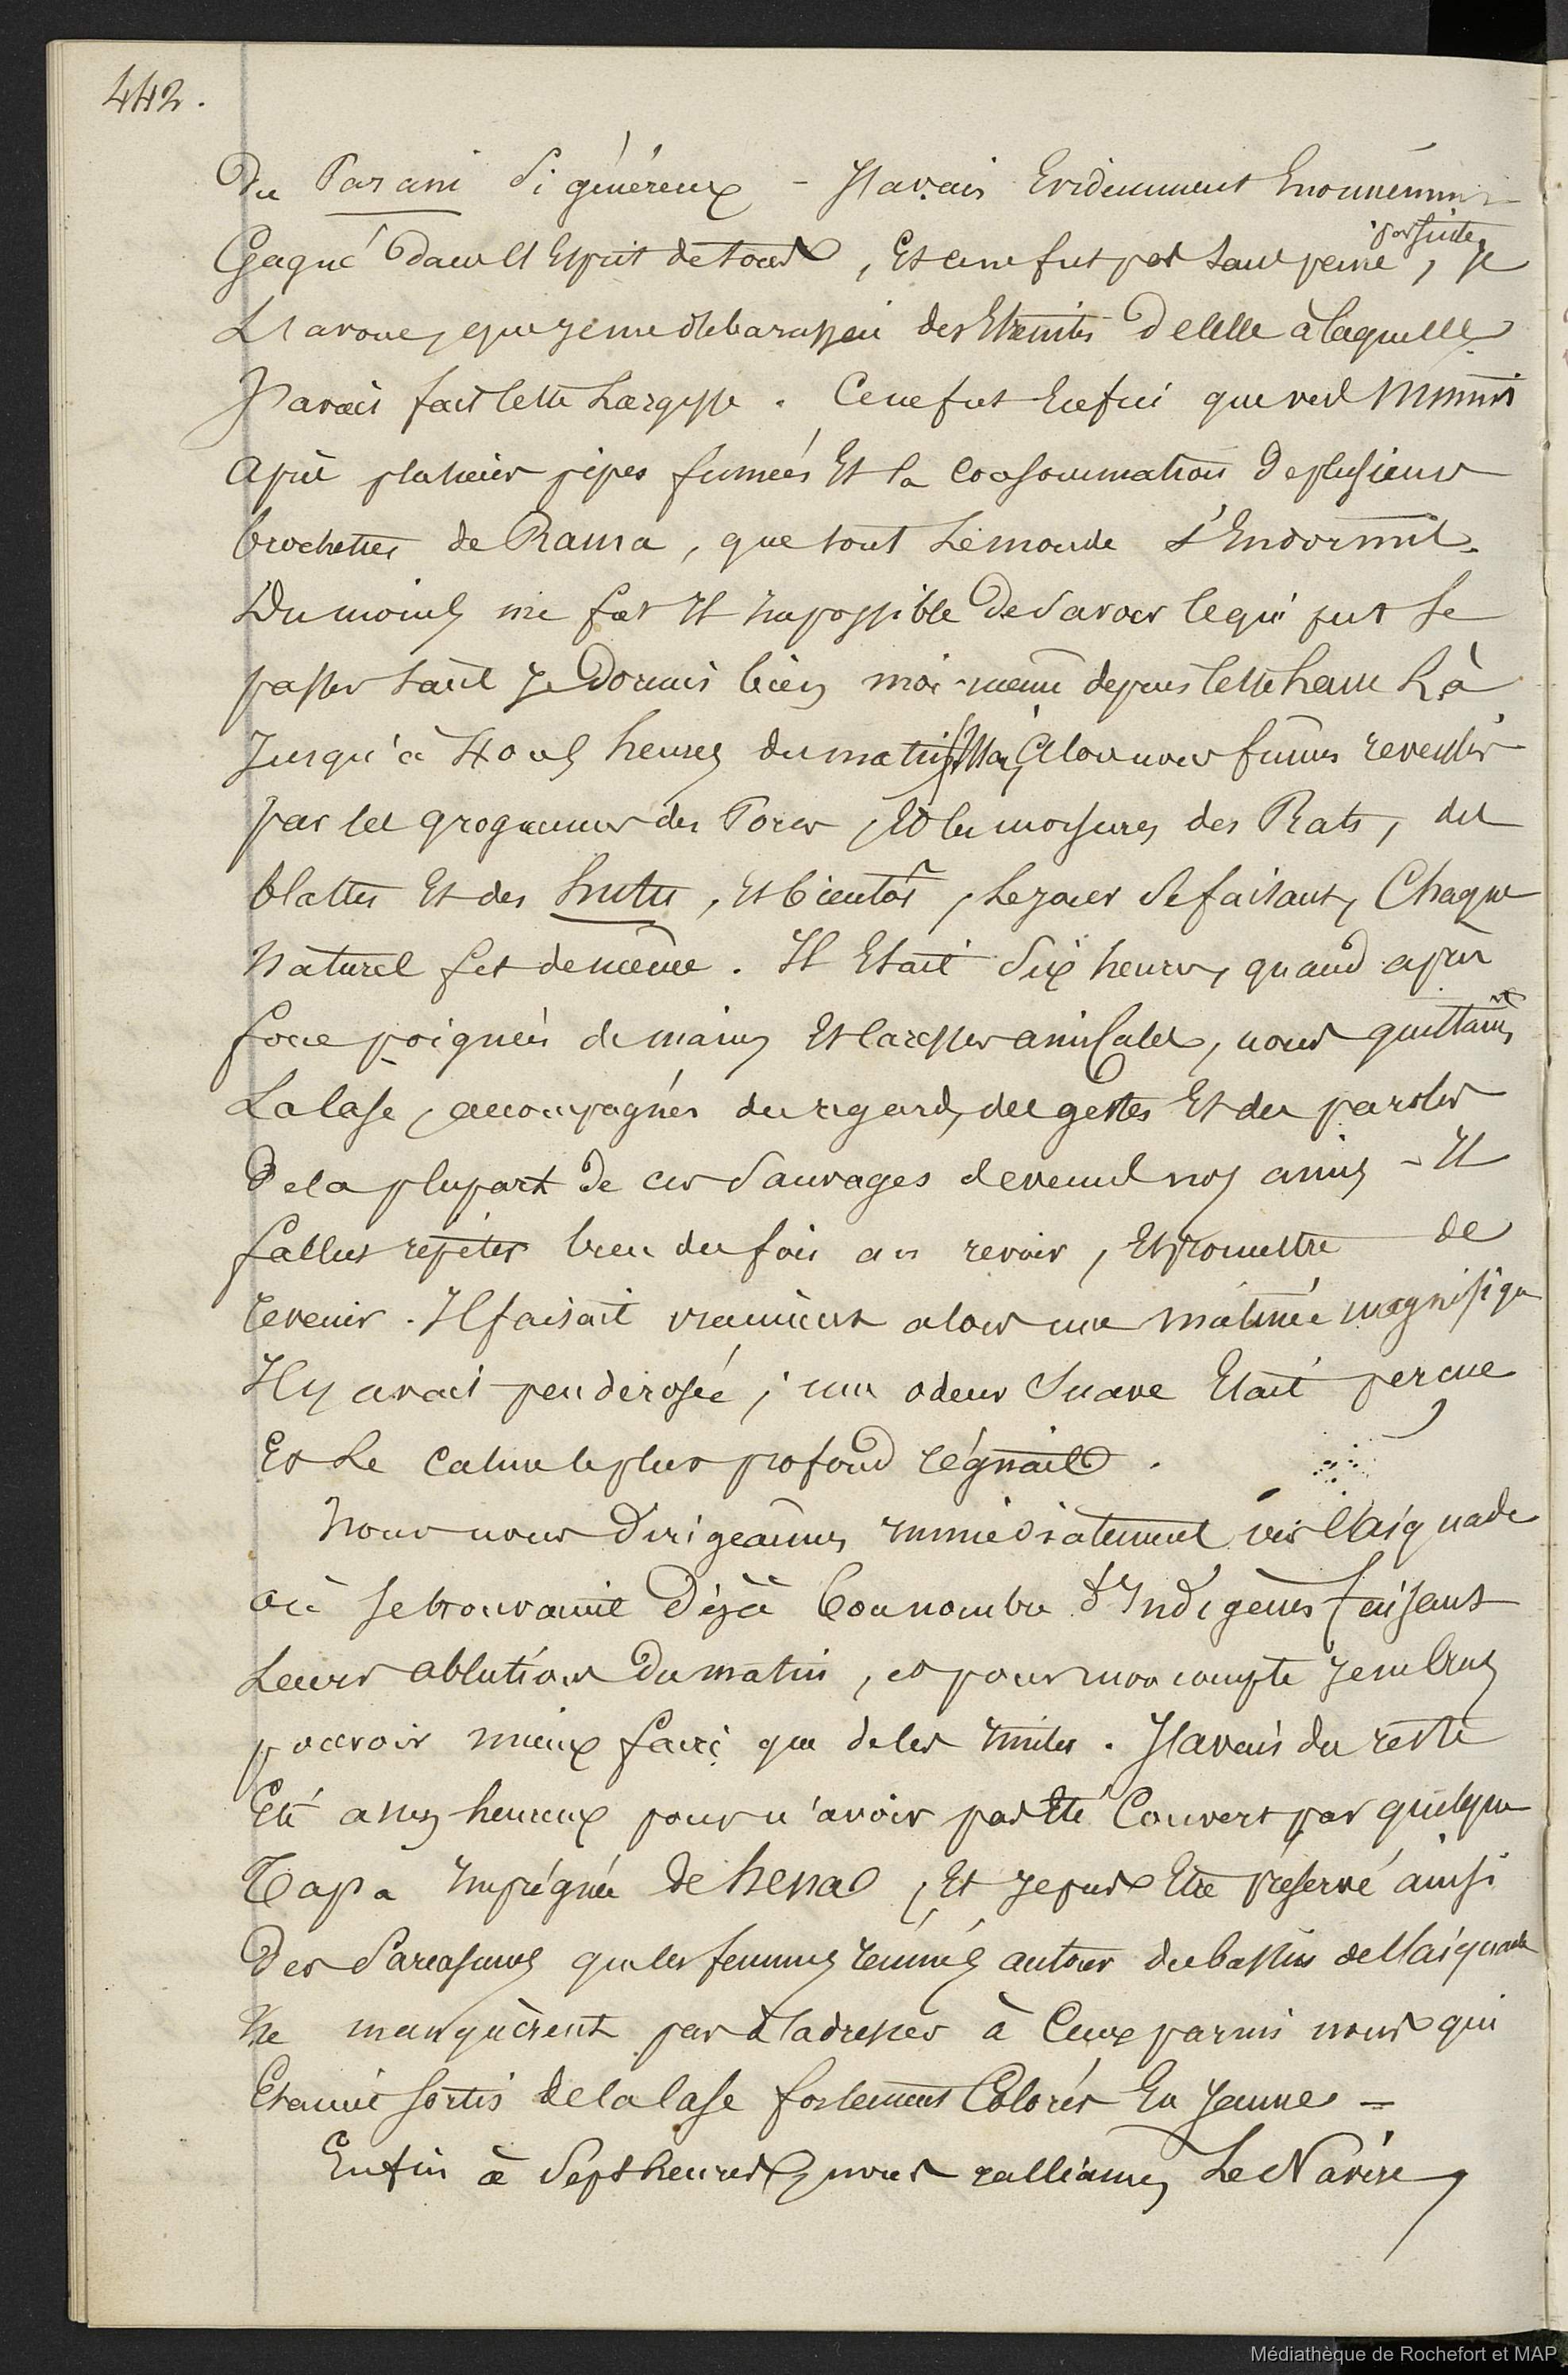 442.
Du Parani Si généreux - J'avais Evidemment Enormémment
Gagné Dans l'Esprit de tous, Et ce ne fut pas sans peine, par suite, je
L'avoue, que je me debarassai des Etreintes De celle à laquelle
J'avais fait cette Largesse. Ce ne fut Enfin que vers Minuit
Après plusieurs pipes fumées Et la consommation De plusieurs
brochettes de Rama, que tout Le monde s'Endormit.
Du moins me fut Il Impossible De Savoir ce qui put se
passer tant Je Dormis bien moi-même depuis cette heure Là
Jusqu'à 4 ou 5 heures du matin. Alors nous fumes reveillés
par les grognements des Porcs, Et les morsures des Rats, des
blattes Et des hutu, Et bientôt, Le jour Se faisant, Chaque
Naturel fit de même. Il Etait Six heures, quand après
force poignées de mains Et Caresses amicales, nous quittames
La Case, accompagnés du regard, des gestes Et des paroles
De la plupart De ces Sauvages devenus nos amis - Il
fallut répéter bien des fois au revoir, Et promettre de
revenir. Il faisait vraiment alors une matinée magnifique
Il y avait peu de rosée; une odeur Suave Etait percue
Et Le Calme le plus profond régnait.
Nous nous Dirigeâmes Immédiatement vers l'aiguade
où se trouvaient Déjà bon nombre d'Indigènes faisant
Leurs ablutions Du matin, et pour mon compte Je ne crus
pouvoir mieux faire que de les Imiter. J'avais du reste
Eté assez heureux pour n'avoir pas Eté Couvert par quelque
Tapa Imprégnée de hena, Et Je pus Etre préservé ainsi
Des Sarcasmes que les femmes réunies autour du bassin de l'aiguade
Ne manquèrent pas d'adresser à Ceux parmi nous qui
Etaient sortis de la Case fortement Colorés En Jaune -
Enfin à Sept heures, nous ralliames Le Navire,
Médiathèque de Rochefort et MAP